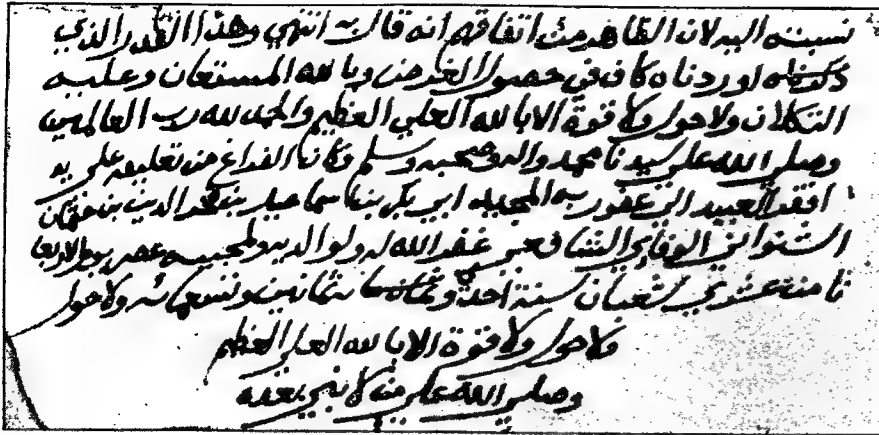 نسبته اليه لان الظاهر من اتفاقهم انه قال به انتهى وهذا القدر الذي
اوردناه كاف في حصول الغرض وبالله المستعان وعليه
التكلان ولا حول ولا قوة الا بالله العلي العظيم والحمد لله رب العالمين
وصلي الله علي سيدنا محمد واله وصحبه وسلم وكان الفراغ من تعليقه علي يد
افقر العبيد الي عفو ربه المجيد ابي بكر بن اسماعيل بن الدين بن عثمان
الشنواني الوفايي الشافعي غفر الله له ولوالديه ولمحبيه عصر يوم الاربعا
ثامن عشري شعبان سنة احدي وثمانين وتسعمائه ولا حول
ولا حول ولا قوة الا بالله العلي العظيم
وصلي الله علي من لا نبي بعده